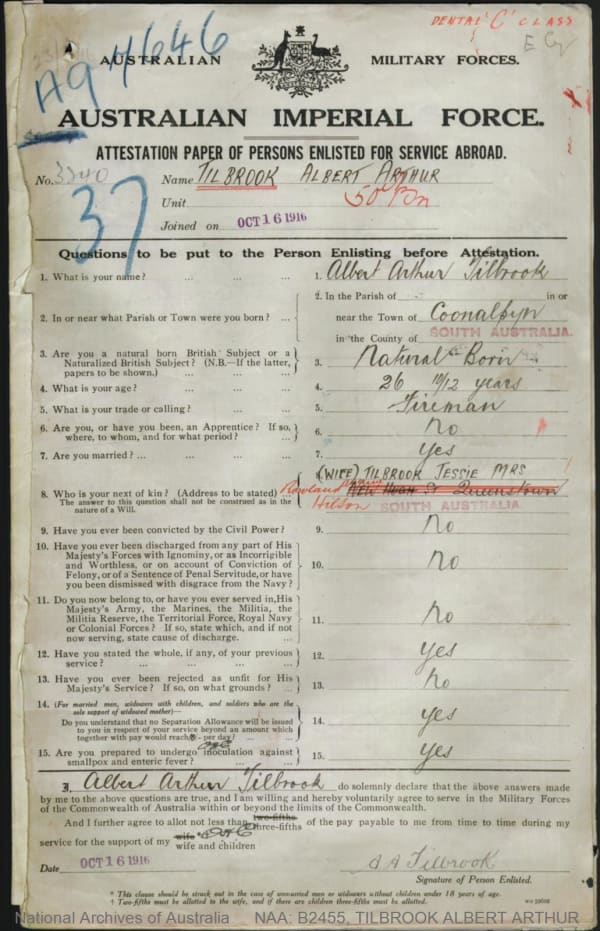 DENTAL 'C' CLASS
A94646
AUSTRALIAN MILITARY FORCES.
AUSTRALIAN IMPERIAL FORCE.
ATTESTATION PAPER OF PERSONS ENLISTED FOR SERVICE ABROAD.
No. 3340 Name TILBROOK ALBERT ARTHUR
37
Unit 50 Bn
Joined on OCT 16 1916
Questions to be put to the Person Enlisting before Attestation.
1. What is your name? ... ... ... 1. Albert Arthur Tilbrook
2. In or near what Parish or Town were you born? ... 2. In the Parish of in or
near the Town of Coonalpyn
in the County of SOUTH AUSTRALIA.
3. Are you a natural born British Subject or a
Naturalized British Subject? (N.B.—If the latter,
papers to be shown.) ... ... 3. Natural Born
4. What is your age? ... ... ... 4. 26 years
5. What is your trade or calling? ... ... 5. Fireman
6. Are you, or have you been, an Apprentice? If so,
where, to whom, and for what period? ... 6. No
7. Are you married? ... ... ... 7. Yes
8. Who is your next of kin? (Address to be stated)
The answer to this question shall not be construed as in the
nature of a Will.
(WIFE) TILBROOK JESSIE MRS
St Queenstown
SOUTH AUSTRALIA.
9. Have you ever been convicted by the Civil Power? 9. No
10. Have you ever been discharged from any part of His
Majesty's Forces with Ignominy, or as Incorrigible
and Worthless, or on account of Conviction of
Felony, or of a Sentence of Penal Servitude, or have
you been dismissed with disgrace from the Navy? 10. No
11. Do you now belong to, or have you ever served in, His
Majesty's Army, the Marines, the Militia, the
Militia Reserve, the Territorial Force, Royal Navy
or Colonial Forces? If so, state which, and if not
now serving, state cause of discharge. ... 11. No
12. Have you stated the whole, if any, of your previous
service? ... ... ... ... 12. Yes
13. Have you ever been rejected as unfit for His
Majesty's Service? If so, on what grounds? ... 13. No
14. (For married men, widowers with children, and soldiers who are the
sole support of widowed mother)—
Do you understand that no Separation Allowance will be issued
to you in respect of your service beyond an amount which
together with pay would reach per day? ... 14. yes
15. Are you prepared to undergo inoculation against
smallpox and enteric fever? ... ... 15. Yes
I, Albert Arthur Tilbrook do solemnly declare that the above answers made
by me to the above questions are true, and I am willing and hereby voluntarily agree to serve in the Military Forces
of the Commonwealth of Australia within or beyond the limits of the Commonwealth.
And I further agree to allot not less than two-fifths three-fifths of the pay payable to me from time to time during my
service for the support of my wife wife and children
Date OCT 16 1916 A A Tilbrook
Signature of Person Enlisted.
* This clause should be struck out in the case of unmarried men or widowers without children under 18 years of age.
† Two-fifths must be allotted to the wife, and if there are children three-fifths must be allotted.
National Archives of Australia NAA: B2455, TILBROOK ALBERT ARTHUR